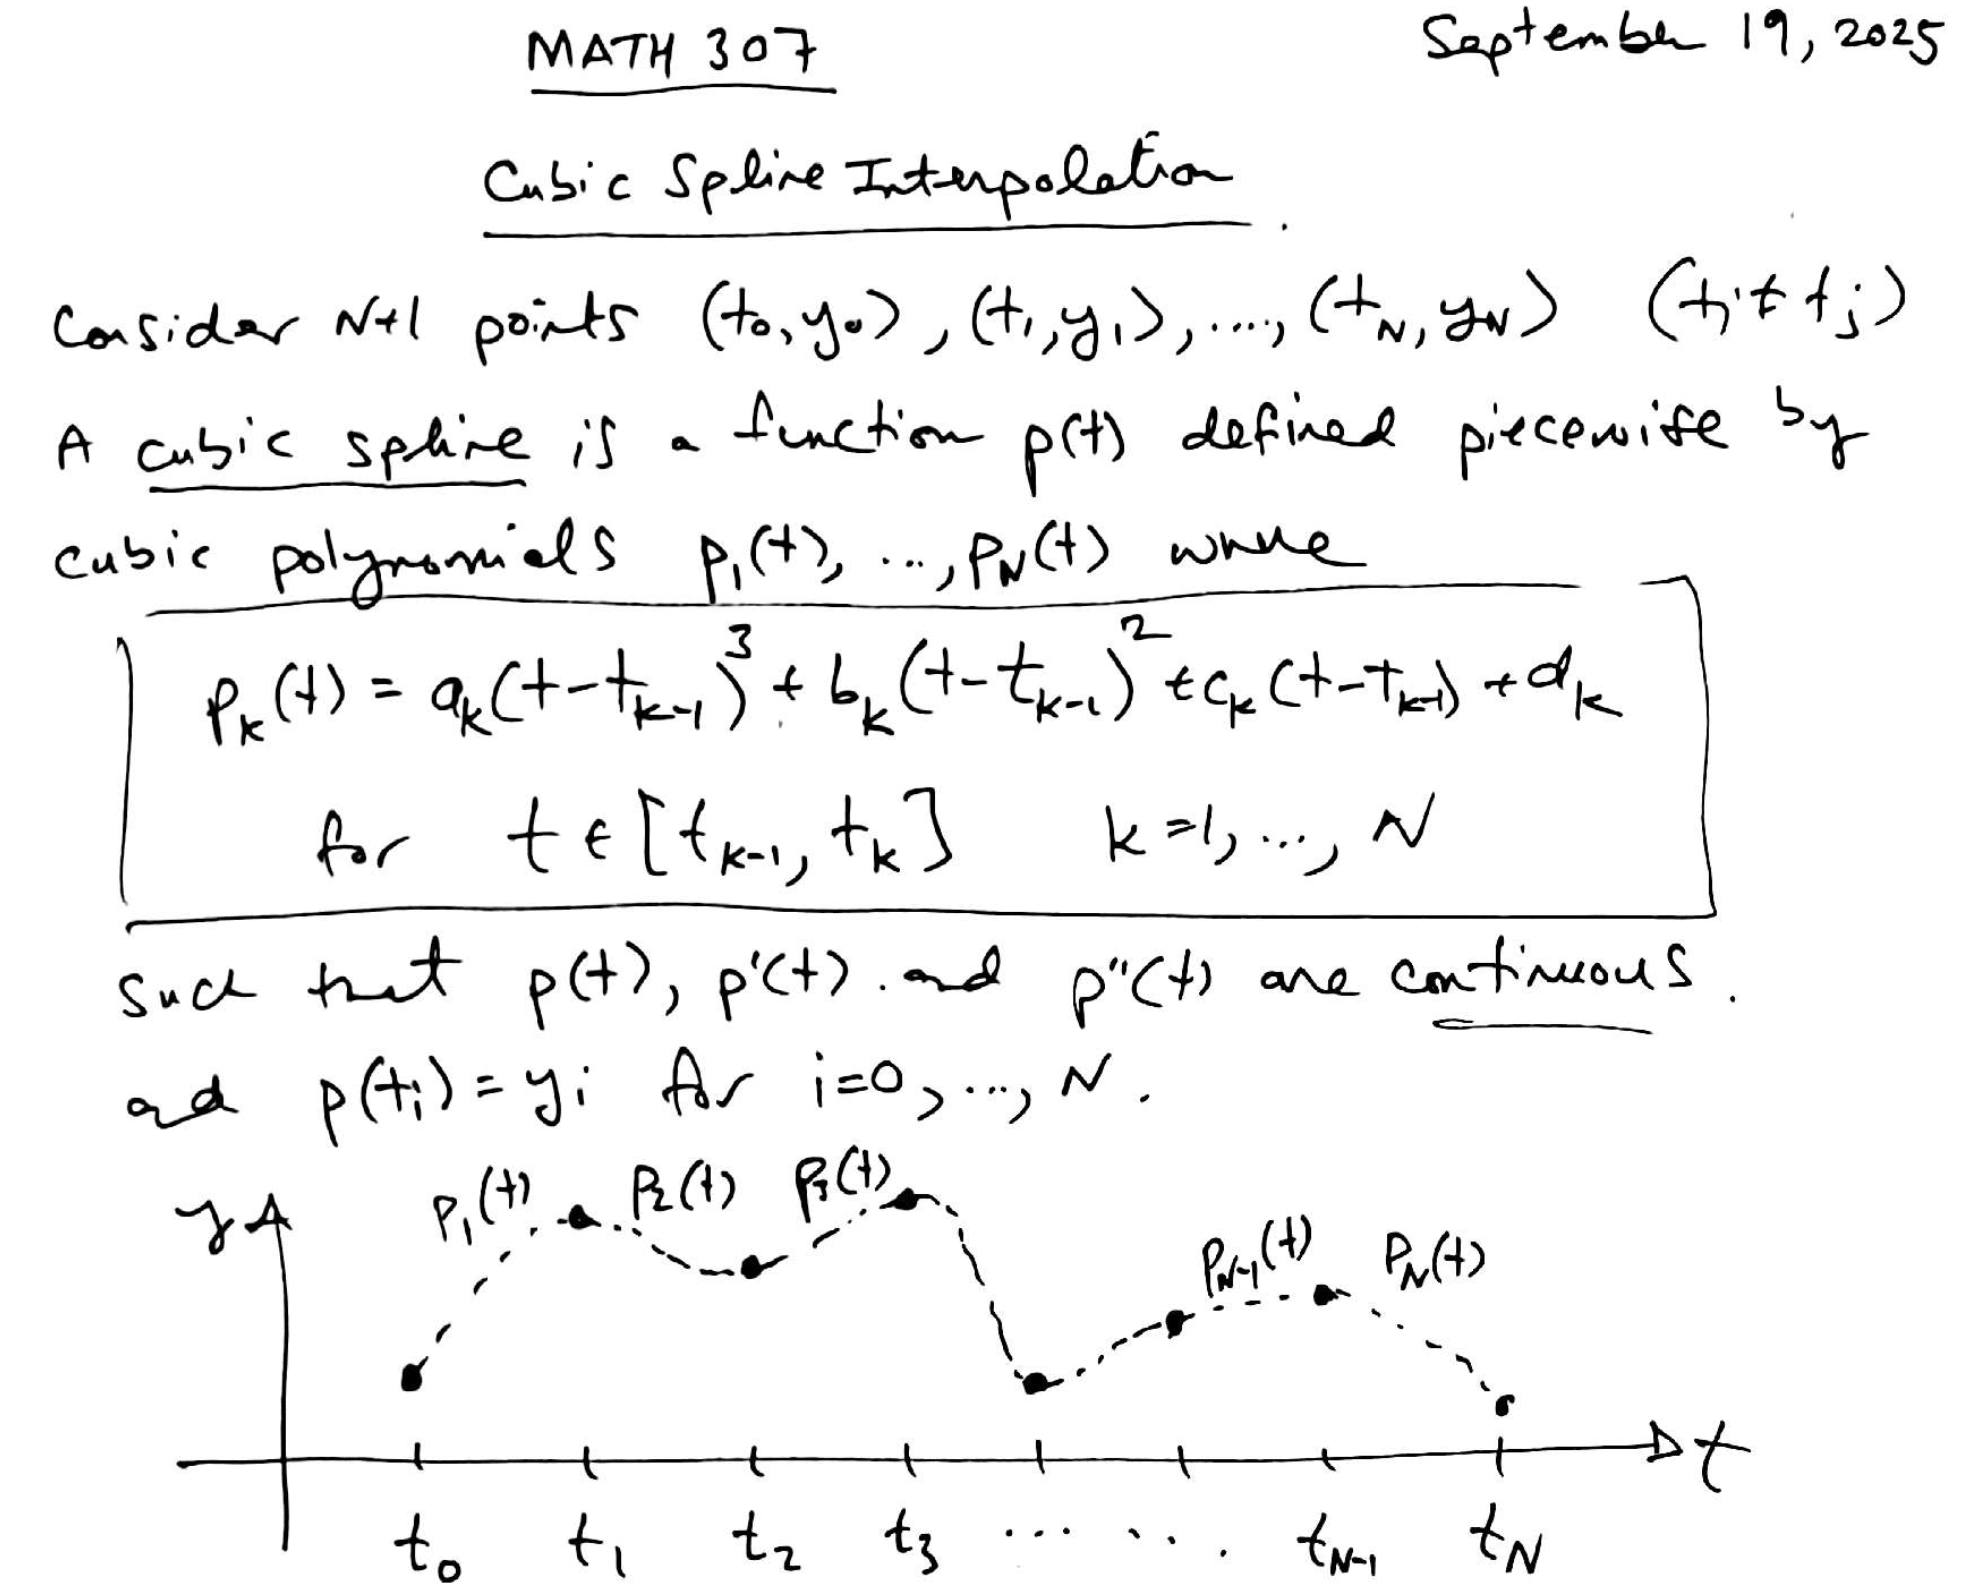 MATH 307
September 19, 2025
Cubic Spline Interpolation.
Consider N+1 points (t₀,y₀), (t₁,y₁), ...., (t_N, y_N) (tᵢ ≠ tⱼ)
A cubic spline is a function p(t) defined piecewise by
cubic polynomials p₁(t), ..., p_N(t) where
p_k(t) = a_k(t-t_{k-1})³ + b_k(t-t_{k-1})² + c_k(t-t_{k-1}) + d_k
for t ∈ [t_{k-1}, t_k] k=1, ..., N
such that p(t), p'(t) and p''(t) are continuous.
and p(tᵢ) = yᵢ for i=0, ..., N.
y p₁(t) p₂(t) p₃(t) p_{N-1}(t) p_N(t)
t
t₀ t₁ t₂ t₃ ... ... t_{N-1} t_N